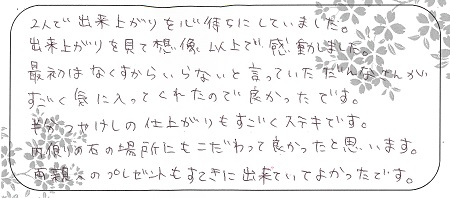 2人で出来上がりを心待ちにしていました。
出来上がりを見て想像以上で感動しました。
最初はなくすからいらないと言っていただんなさんが
すごく気に入ってくれたので良かったです。
半分つやけしの仕上がりもすごくステキです。
内側の石の場所にもこだわって良かったと思います。
両親へのプレゼントもすてきに出来ていてよかったです。